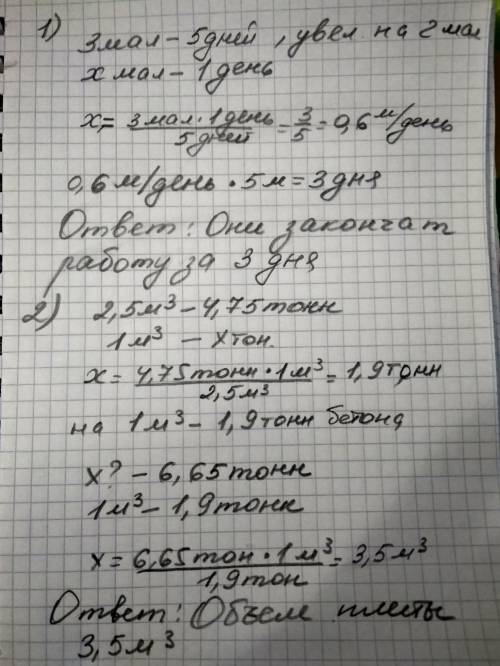 1) 3мал – 5дней, увел на 2 мал
х мал – 1 день
х = 3 мал · 1 день / 5 дней = 3/5 = 0,6 м/день
0,6 м/день · 5 м = 3 дня
Ответ: Они закончат
работу за 3 дня
2) 2,5 м³ – 4,75 тонн
1 м³ – х тон.
х = 4,75 тонн · 1 м³ / 2,5 м³ = 1,9 тонн
на 1 м³ – 1,9 тонн бетона
х? – 6,65 тонн
1 м³ – 1,9 тонн
х = 6,65 тон · 1 м³ / 1,9 тон = 3,5 м³
Ответ: Объем плиты
3,5 м³